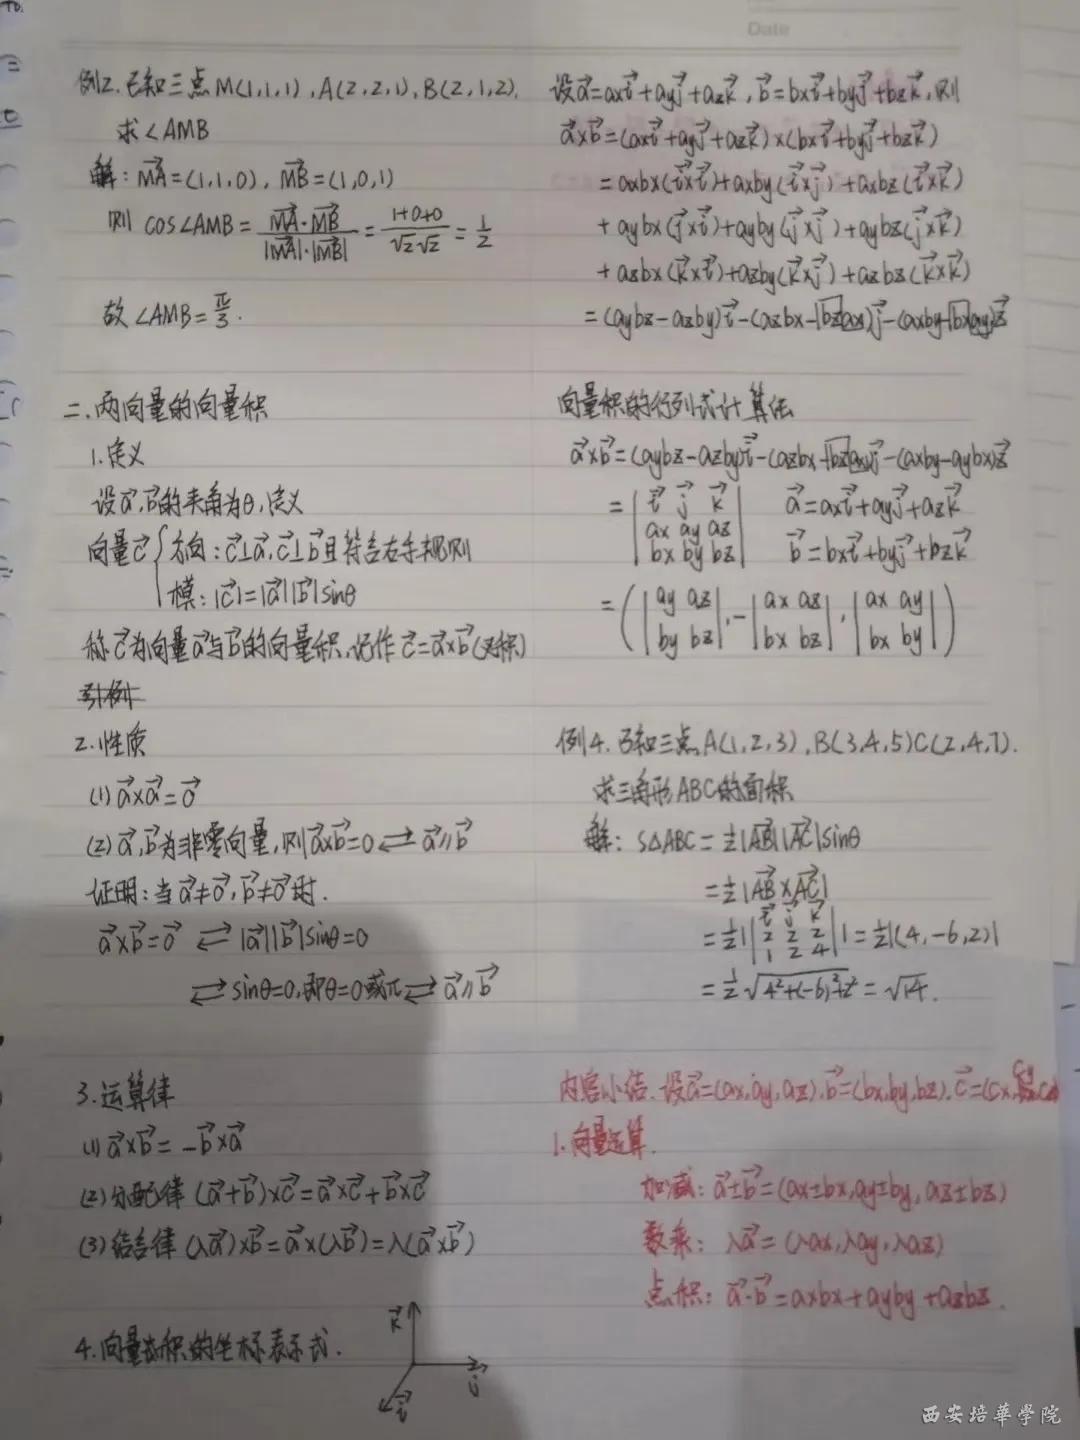 Date
例2.已知三点M(1,1,1),A(2,2,1),B(2,1,2).
求∠AMB
解:MA⃗=(1,1,0),MB⃗=(1,0,1)
则 cos∠AMB=MA⃗·MB⃗/|MA⃗|·|MB⃗|=1+0+0/√2√2=1/2
故∠AMB=π/3.
二.两向量的向量积
1.定义
设a⃗,b⃗的夹角为θ,定义
向量c⃗{方向:c⃗⊥a⃗,c⃗⊥b⃗且符合右手规则
模:|c⃗|=|a⃗||b⃗|sinθ
称c⃗为向量a⃗与b⃗的向量积,记作c⃗=a⃗×b⃗(叉积)
引例
2.性质
(1)a⃗×a⃗=0⃗
(2)a⃗,b⃗为非零向量,则a⃗×b⃗=0⇄a⃗∥b⃗
证明:当a⃗≠0⃗,b⃗≠0⃗时.
a⃗×b⃗=0⃗ ⇄ |a⃗||b⃗|sinθ=0
⇄ sinθ=0,即θ=0或π⇄a⃗∥b⃗
3.运算律
(1)a⃗×b⃗=-b⃗×a⃗
(2)分配律 (a⃗+b⃗)×c⃗=a⃗×c⃗+b⃗×c⃗
(3)结合律 (λa⃗)×b⃗=a⃗×(λb⃗)=λ(a⃗×b⃗)
4.向量积的坐标表示式.
k⃗
j
i⃗
设a⃗=axi⃗+ayj⃗+azk⃗,b⃗=bxi⃗+byj⃗+bzk⃗,则
a⃗×b⃗=(axi⃗+ayj⃗+azk⃗)×(bxi⃗+byj⃗+bzk⃗)
=axbx(i⃗×i⃗)+axby(i⃗×j⃗)+axbz(i⃗×k⃗)
+aybx(j⃗×i⃗)+ayby(j⃗×j⃗)+aybz(j⃗×k⃗)
+azbx(k⃗×i⃗)+azby(k⃗×j⃗)+azbz(k⃗×k⃗)
=(aybz-azby)i⃗-(azbx-bzax)j⃗-(axby-bxay)z⃗
向量积的行列式计算法
a⃗×b⃗=(aybz-azby)i⃗-(azbx-bzax)j⃗-(axby-aybx)z⃗
=|i⃗ j⃗ k⃗| a⃗=axi⃗+ayj⃗+azk⃗
ax ay az
bx by bz b⃗=bxi⃗+byj⃗+bzk⃗
=(|ay az|,-|ax az|,|ax ay|)
by bz bx bz bx by
例4.已知三点A(1,2,3),B(3,4,5)C(2,4,7).
求三角形ABC的面积
解:S△ABC=1/2|AB⃗||AC⃗|sinθ
=1/2|AB⃗×AC⃗|
i⃗ j⃗ k⃗
=1/2||2 2 2||=1/2|(4,-6,2)|
1 2 4
=1/2√4²+(-6)²+2²=√14.
内容小结.设a⃗=(ax,ay,az),b⃗=(bx,by,bz),c⃗=(cx,cy,cz)
1.向量运算.
加减:a⃗±b⃗=(ax±bx,ay±by,az±bz)
数乘:λa⃗=(λax,λay,λaz)
点积:a⃗·b⃗=axbx+ayby+azbz.
西安培華学院